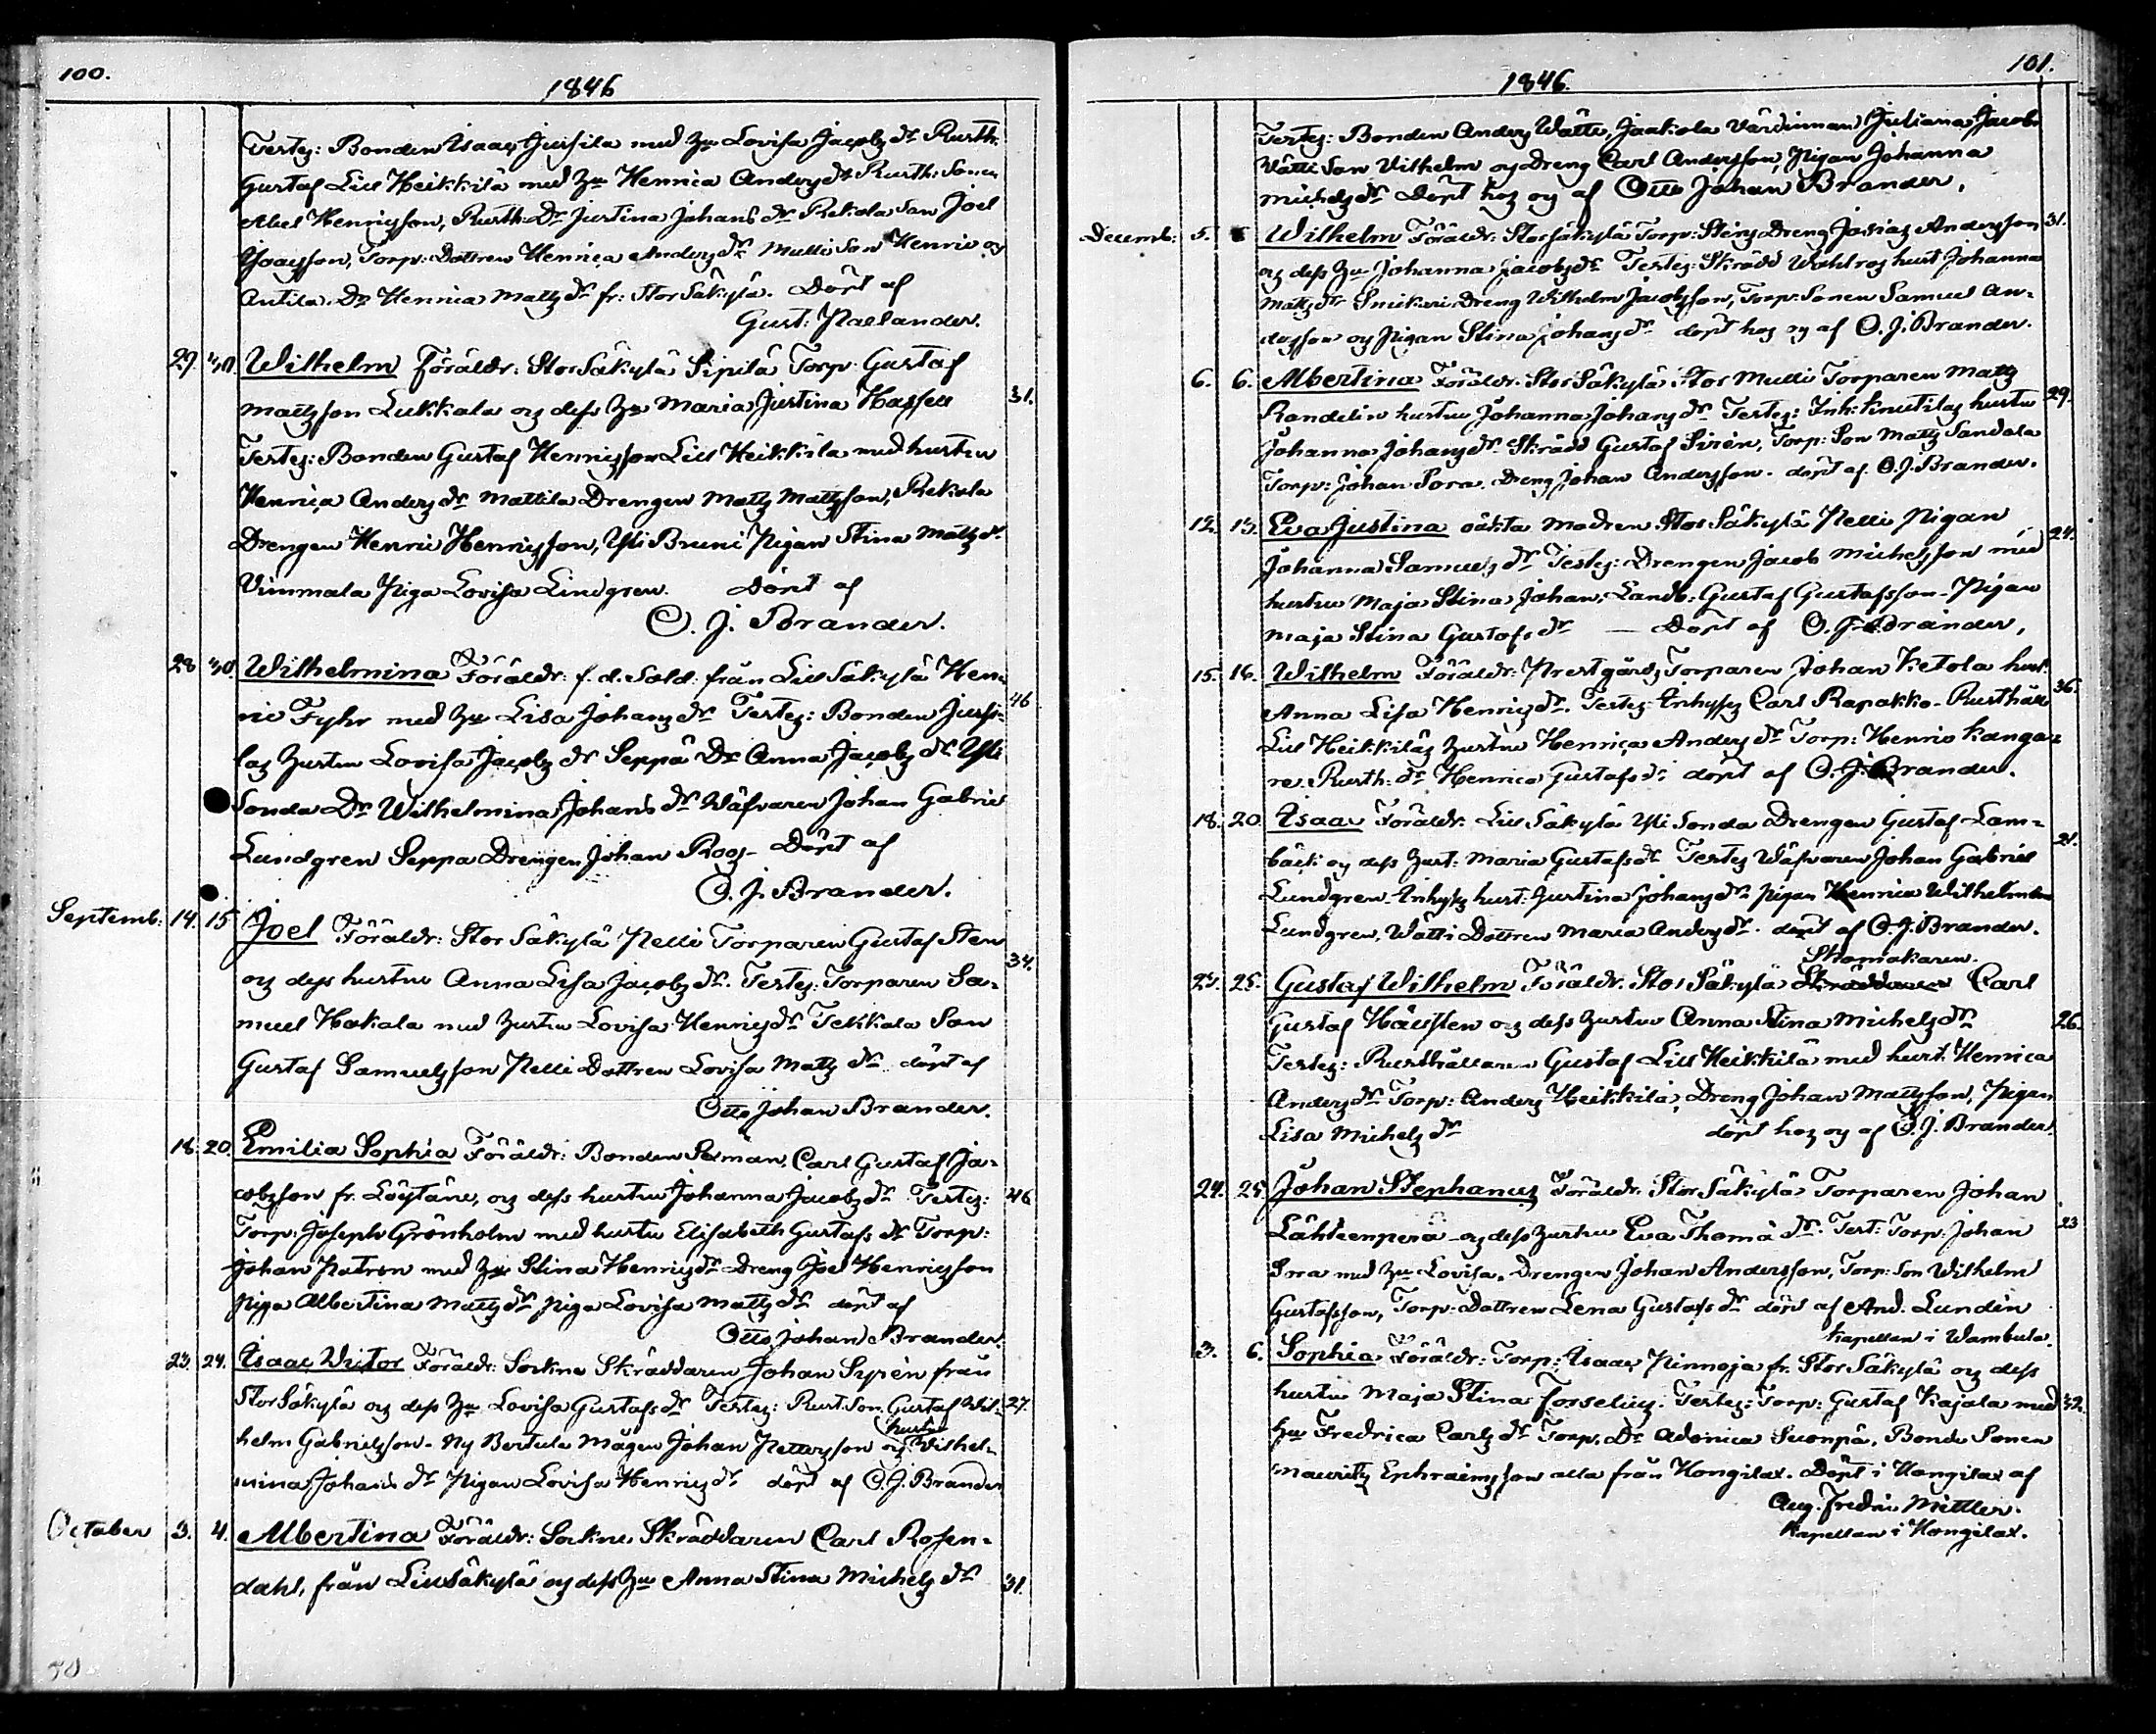 100.
1846
Testes: Bonden Isaac Jussila med hu Lovisa Jacobsdr Rusth:
Gustaf Lill Heikkilä med hu Henrica Andersdr Rusth: Sonen
Abel Henricsson, Rusth: Dr Justina Johansdr Rekola Son Joel
Isaacsson, Torp: Dottren Henrica Andersdr Mulli Son Henric og
Antila Dr Henrica Mattsdr fr: Stor Säkylä. Döpt af
Gust: Paelander.
29. 30. Wilhelm Föräldr: Stor Säkylä Sipilä Torp: Gustaf
Mattsson Lukkala og dess hu Maria Justina Hassell 31.
Testes: Bonden Gustaf Henricsson Lill Heikkilä med hustru
Henrica Andersdr Mattila Drengen Matts Mattsson, Rekola
Drengen Henric Henricsson, Yli Bruni Pigan Stina Mattsdr
Vimmala Piga Lovisa Lindgren. Döpt af
O. J. Brander.
28 30. Wilhelmina Föräldr: f. d. Sold: från Lill Säkylä Hen-
ric Fyhr med hu Lisa Johansdr Testes: Bonden Jussi- 46
las hustru Lovisa Jacobsdr Seppä Dr Anna Jacobsdr Yli
Sonda Dr Wilhelmina Johansdr Wäfvaren Johan Gabriel
Lundgren Seppä Drengen Johan Roos- Döpt af
O. J. Brander.
Septemb: 14. 15 Joel Föräldr: Stor Säkylä Pelli Torparen Gustaf Sten
og dess hustru Anna Lisa Jacobsdr. Testes: Torparen Sa- 34.
muel Hakala med hustru Lovisa Henricsdr Tekkala Son
Gustaf Samuelsson Pelli Dottren Lovisa Mattsdr döpt af
Otto Johan Brander.
18. 20. Emilia Sophia Föräldr: Bonden Sexman, Carl Gustaf Ja-
cobsson fr. Löytäne, og dess hustru Johanna Jacobsdr Testes: 46
Torp: Joseph Grönholm med hustru Elisabeth Gustafsdr Torp:
Johan Patron med hu Stina Henricsdr Dreng Joel Henricsson
Piga Albertina Mattsdr Piga Lovisa Mattsdr döpt af
Otto Johan Brander.
23. 24. Isaac Victor Föräldr: Sockne Skräddaren Johan Syrén från
Stor Säkylä og dess hu Lovisa Gustafsdr Testes: Rust. Son Gustaf Wil- 27.
helm Gabrielsson. Ny Bertula Mågen Johan Pettersson og hustru Wilhel-
mina Johansdr Pigan Lovisa Henricsdr döpt af O. J. Brander
October 3. 4. Albertina Föräldr: Sockne Skräddaren Carl Rosen-
dahl, från Lill Säkylä og dess hu Anna Stina Michelsdr 31.
50
101.
1846.
Testes: Bonden Anders Wätti, Jaakola Värdinnan Juliana Jacobs
Wätti Son Vilhelm og Dreng Carl Andersson, Pigan Johanna
Michelsdr Döpt hos og af Otto Johan Brander.
Decemb: 5. 6 Wilhelm Föräldr: Stor Säkylä Torp: Stens Dreng Josias Andersson 31.
og dess hu Johanna Jacobsdr Testes: Skrädd Wahlros hust Johanna
Mattsdr Snickari Dreng Wilhelm Jacobsson, Torp: Sonen Samuel An-
dersson og Pigan Stina Johansdr döpt hos og af O. J. Brander.
6. 6. Albertina Föräldr: Stor Säkylä Stor Mulli Torparen Matts
Randelin hustru Johanna Johansdr Testes: Inh: Knutilas hustru 29.
Johanna Johansdr Skrädd Gustaf Sirén, Torp: Son Matts Sandala
Torp: Johan Sora. Dreng Johan Andersson. döpt af O. J. Brander.
12. 13. Eva Justina oäkta Modren Stor Säkylä Pelli Pigan
Johanna Samuelsdr Testes: Drengen Jacob Michelsson med 24.
hustru Maja Stina Johan, Landb: Gustaf Gustafsson- Pigan
Maja Stina Gustafsdr — Döpt af O. J. Brander.
15. 16. Wilhelm Föräldr: Prestgårds Torparen Johan Ketola hust.
Anna Lisa Henricsdr. Testes: Inhyses Carl Rapakko- Rusthåll 36.
Lill Heikkiläs hustru Henrica Andersdr Torp: Henric Kanga-
re. Rusth: dr Henrica Gustafsdr döpt af O. J. Brander.
18. 20. Isaac Föräldr: Lill Säkylä Yli Sonda Drengen Gustaf Lam-
bäck og dess hust: Maria Gustafsdr Testes Wäfvaren Johan Gabriel 21.
Lundgren Inhyses hust: Justina Johansdr Pigan Henrica Wilhelmina
Lundgren, Wätti Dottren Maria Andersdr. döpt af O. J. Brander.
Skomakaren
23. 25. Gustaf Wilhelm Föräldr: Stor Säkylä Skräddaren Carl
Gustaf Hällsten og dess hustru Anna Stina Michelsdr 26.
Testes: Rusthållaren Gustaf Lill Heikkilä med hust. Henrica
Andersdr Torp: Anders Heikkilä, Dreng Johan Mattsson, Pigan
Lisa Michelsdr döpt hos og af O. J. Brander.
24. 25. Johan Stephanus Föräldr: Stor Säkylä Torparen Johan
Lähteenperä og dess hustru Eva Thomädr. Test: Torp: Johan 23
Sora med hu Lovisa, Drengen Johan Andersson, Torp: Son Wilhelm
Gustafsson, Torp: Dottren Lena Gustafsdr döpt af And. Lundén
Kapellan i Wambula.
3. 6. Sophia Föräldr: Torp: Isaac Pinnoja fr. Stor Säkylä og dess
hustru Maja Stina Forselius. Testes: Torp: Gustaf Kajala med 32.
hu Fredrica Carlsdr Torp. Dr Adonica Suonpä. Bonde Sonen
Mauritz Ephraimsson alla från Hongilax. Döpt i Hongilax af
Aug. Fredric Mittler.
Kapellan i Hongilax.